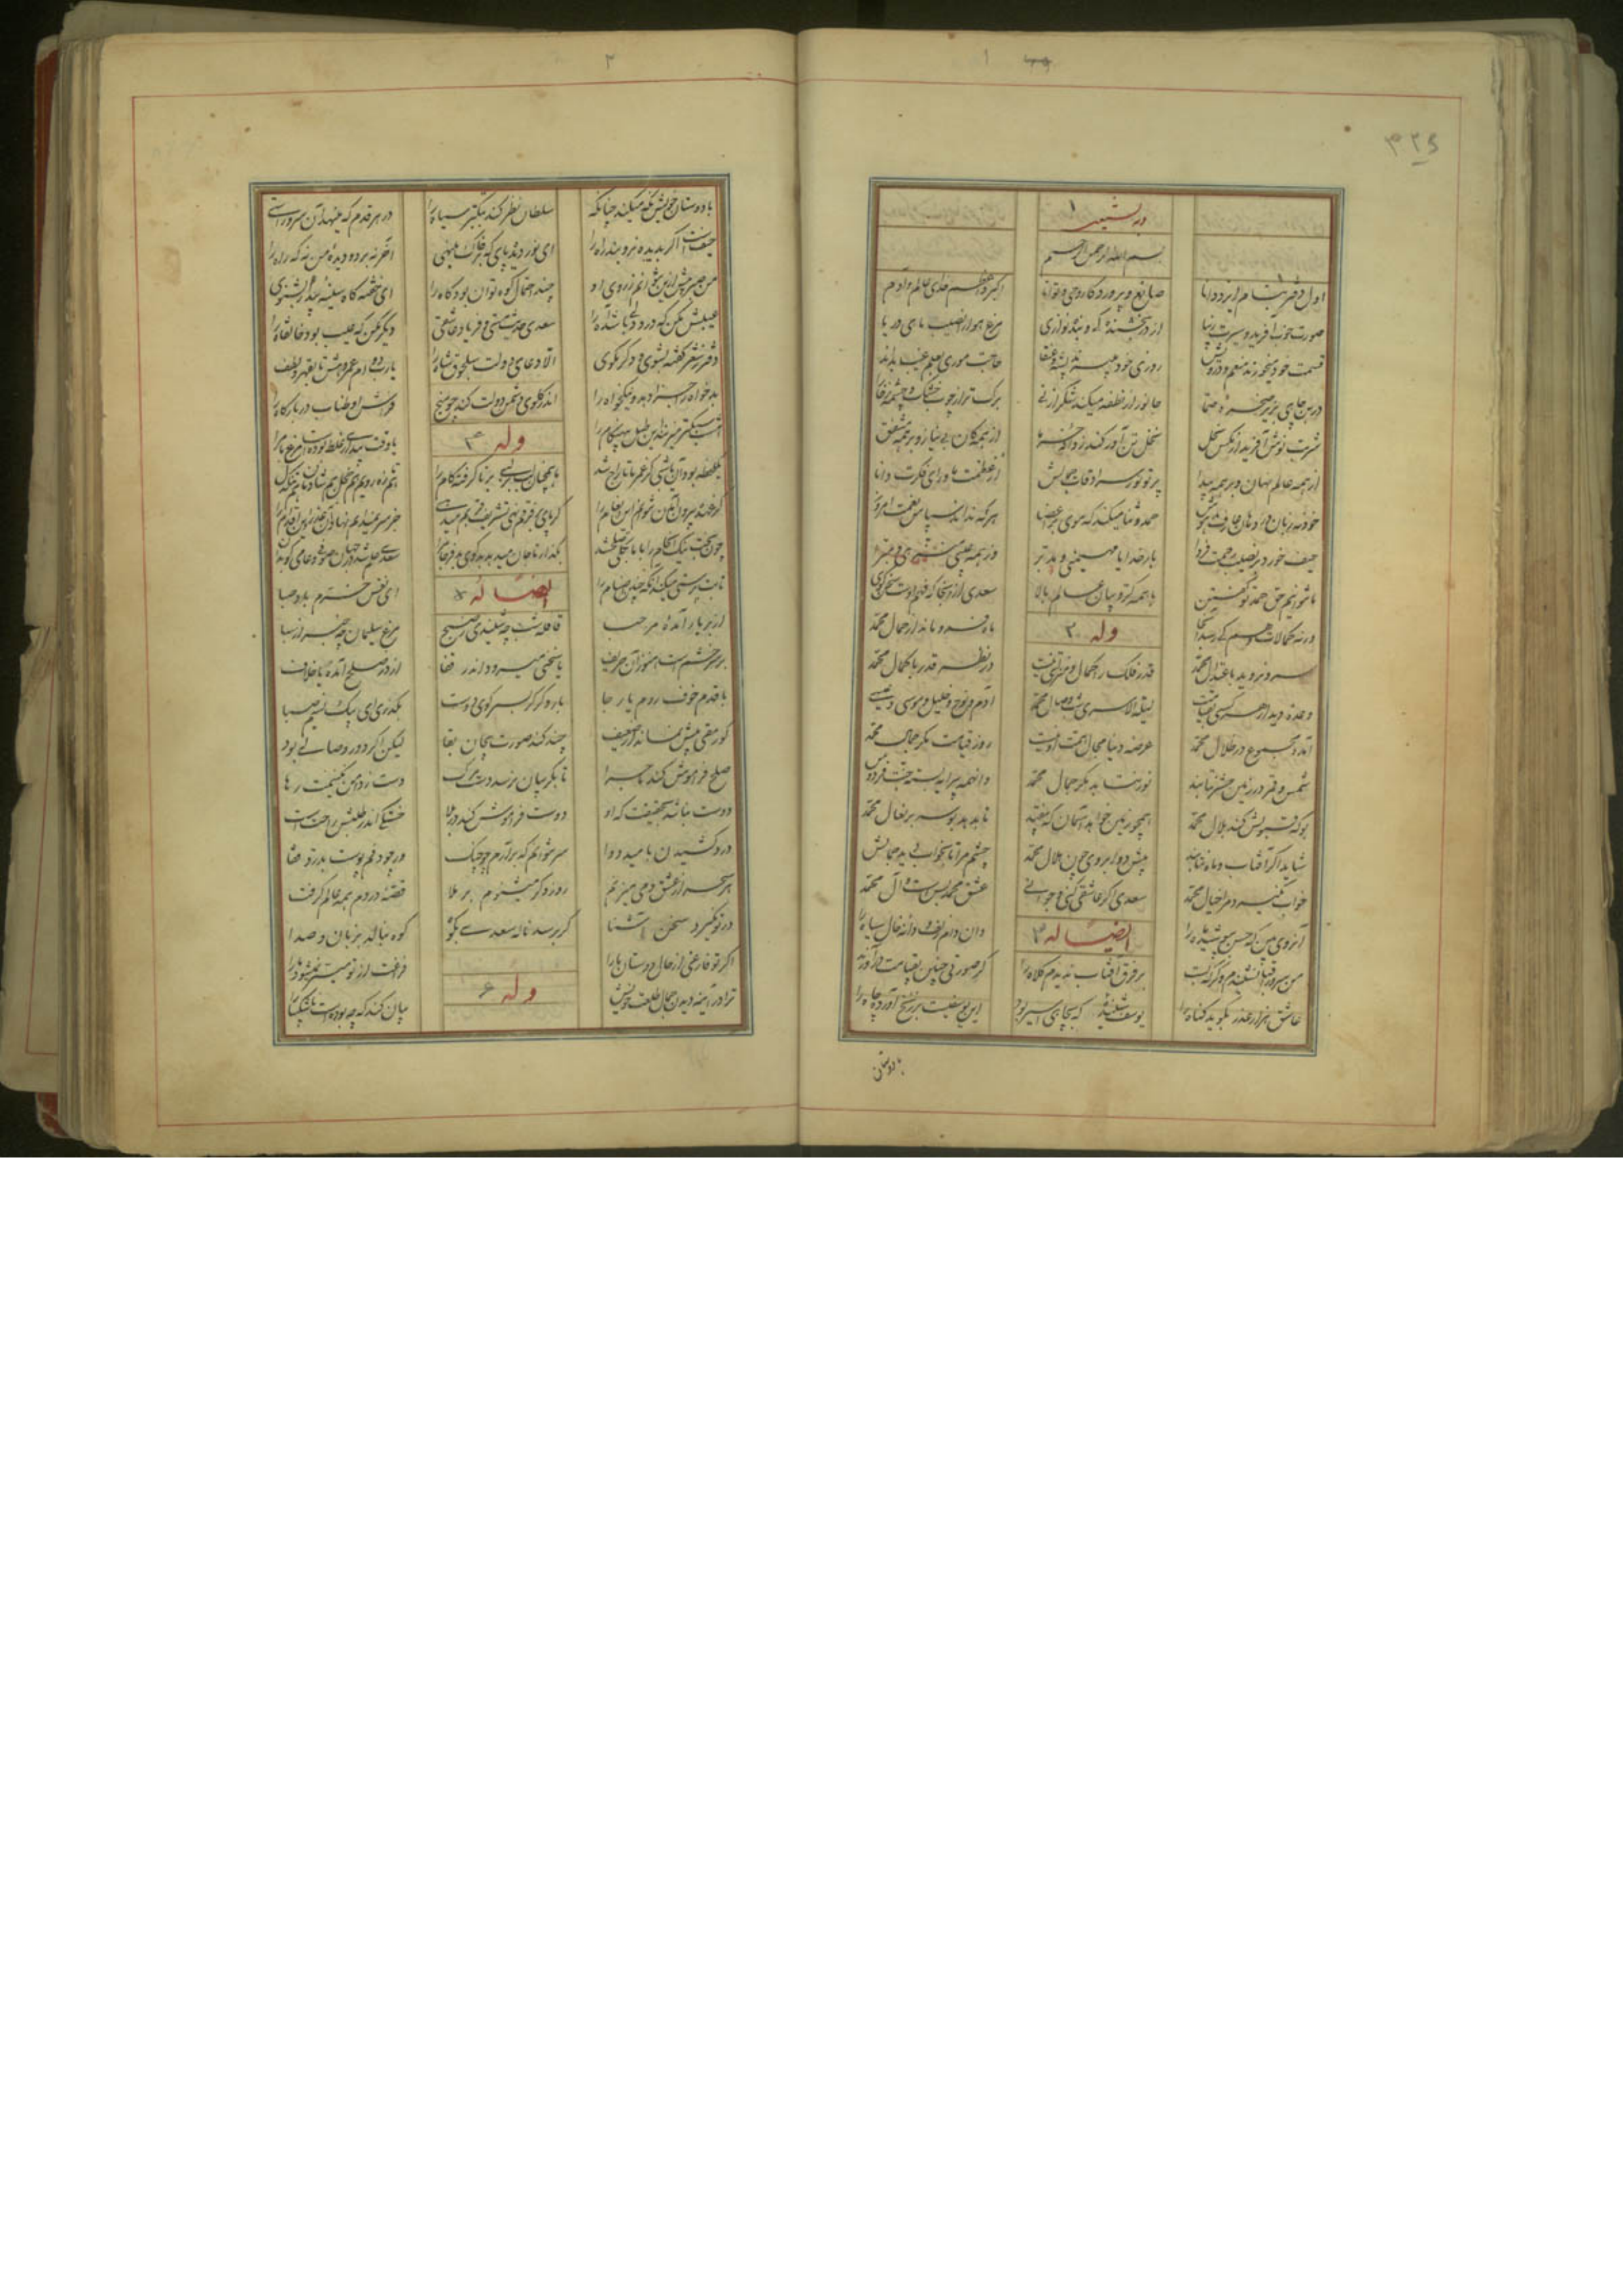 ۳۲۶
۱
در تشبیب ۱
بسم الله الرحمن الرحیم
اول دفتر بنام ایزد دانا صانع و پروردکار و حی و توانا اکبر و اعظم خدای عالم و آدم
صورت خوب آفرید و سیرت زیبا از در بخشندکی و بنده نوازی مرغ هوا را نصیب ماهی دریا
قسمت خود میخورند منعم و درویش روزی خود میبرند پشه و عنقا حاجت موری بعلم غیب بداند
در بن چاهی بزیر صخره و صما جانور از نطفه میکند شکر از نی برک تر از چوب خشک و چشمه ز خارا
شربت نوش آفرید از مکس نحل نخل تن آور کند ز دانه خرما از همکان بی نیاز و بر همه مشفق
از همه عالم نهان و بر همه پیدا پرتو نور سرادقات جلالش از عظمت ماورای فکرت دانا
خود نه زبان در دهان عارف مدهوش حمد و ثنا میکند که موی بر اعضا هر که نداند سپاس نعمت امروز
حیف خورد بر نصیب رحمت فردا بارخدایا مهیمنی و مدبر وز همه عیبی منزهی و مبرا
ما نتوانیم حق حمد تو کفتن با همه کروبیان عالم بالا سعدی از آنجا که فهم اوست سخن کوی
ورنه کمالات وهم کی رسد آنجا وله ۲ ماه فرو ماند از جمال محمد
سرو نروید باعتدال محمد قدر فلک را کمال و منزلتی نیست در نظر قدر با کمال محمد
وعده دیدار هر کسی بقیامت لیلة الاسری شب وصال محمد آدم و نوح و خلیل و موسی و عیسی
آمده مجموع در ظلال محمد عرصه دنیا مجال همت او نیست روز قیامت نکر مجال محمد
شمس و قمر در زمین حشر نتابند نور نتابد مکر جمال محمد وانهمه پیرایه بسته جنت فردوس
بو که قبولش کند بلال محمد همچو زمین خواهد آسمان که بیفتد تا بدهد بوسه بر نعال محمد
شاید اکر آفتاب و ماه نتابند پیش دو ابروی چون هلال محمد چشم مرا تا بخواب دید جمالش
خواب نمیکیرد از خیال محمد سعدی اکر عاشقی کنی و جوانی عشق محمد بس است و آل محمد
آنروی بین که حسن بپوشید ماه را ایضا له ۳ وان دام زلف و دانه خال سیاه را
من سرو را قبا نشنیدم دکر که بست بر فرق آفتاب ندیدم کلاه را کر صورتی چنین بقیامت در آورند
عاشق هزار عذر بکوید کناه را یوسف شنیده که بچاهی اسیر بود این یوسفیست بر زنخ آورده چاه را
با دوستان
۲
با دوستان خویش نکه میکند چنانکه سلطان نظر کند بتکبر سپاه را در هر قدم که مینهد آن سرو راستی
حیفست اکر بدیده نروبند راه را ای نور دیده پای که بر خاک مینهی آخر نه بر دو دیده من به که راه را
من صبر پیش ازین نتوانم ز روی او چند احتمال کوه توان بود کاه را ای خفته که آه سینه بیدار نشنوی
عیبش مکن که درد دلی باشد آه را سعدی حدیث مستی و فریاد عاشقی دیکر مکن که عیب بود خانقاه را
دفتر ز شعر کفته بشوی و دکر مکوی الا دعای دولت سلجوق شاه را یارب دوام عمر دهش تا بقهر و لطف
بدخواه را جزا دهد و نیکخواه را اندر کلوی دشمن دولت کند چو میخ فراش او طناب در بارکاه را
امشب سبکتر میزنند این طبل بی هنکام را وله ۴ یا وقت بیداری غلط بودست مرغ بام را
یکلحظه بود آن یا شبی کز عمر ما تاراج شد ما همچنان لب بر لبی بر نا کرفته کام را هم تازه رویم هم خجل هم شادمان هم تنکدل
کز عهده بیرون آمدن نتوانم این انعام را کر پای بر فرقم نهی تشریف قربت میدهی جز سر نمیدانم نهادن عذر این اقدام را
چون بخت نیک انجام را با ما بکلی صلح شد بکذار تا جان میدهد بدکوی بدفرجام را سعدی علم شد در جهان صوفی و عامی کو بدان
ما بت پرستی میکنیم آنکه چنین اصنام را ایضا له ۵ ای نفس خرم باد صبا
از بر یار آمده مرحبا قافله شب چه شنیدی ز صبح مرغ سلیمان چه خبر از سبا
بر سر خشم است هنوز آن حریف یا سخنی میرود اندر رضا از در صلح آمده یا خلاف
با قدم خوف روم یا رجا بار دکر کر بسر کوی دوست بکذری ای پیک نسیم صبا
کو رمقی بیش نماند از ضعیف چند کند صورت بیجان بقا لیکن اکر دور وصالی بود
صلح فراموش کند ماجرا تا بکریبان نرسد دست مرک دست ز دامن نکنیمت رها
دوست نباشد بحقیقت که او دوست فراموش کند در بلا خستکی اندر طلبش راحت است
درد کشیدن بامید دوا سر نتوانم که بر آرم چو چنک ور چو دفم پوست بدرد قفا
هر سحر از عشق دمی میزنم روز دکر میشنوم بر ملا قصه دردم همه عالم کرفت
در تو نکیرد سخن آشنا کر برسد ناله سعدی بکوه کوه بنالد بزبان و صدا
اکر تو فارغی از حال دوستان یارا وله ۶ فراغت از تو میسر نمیشود ما را
ترا در آینه دیدن جمال طلعت خویش بیان کند که چه بودست ناشکیبا را